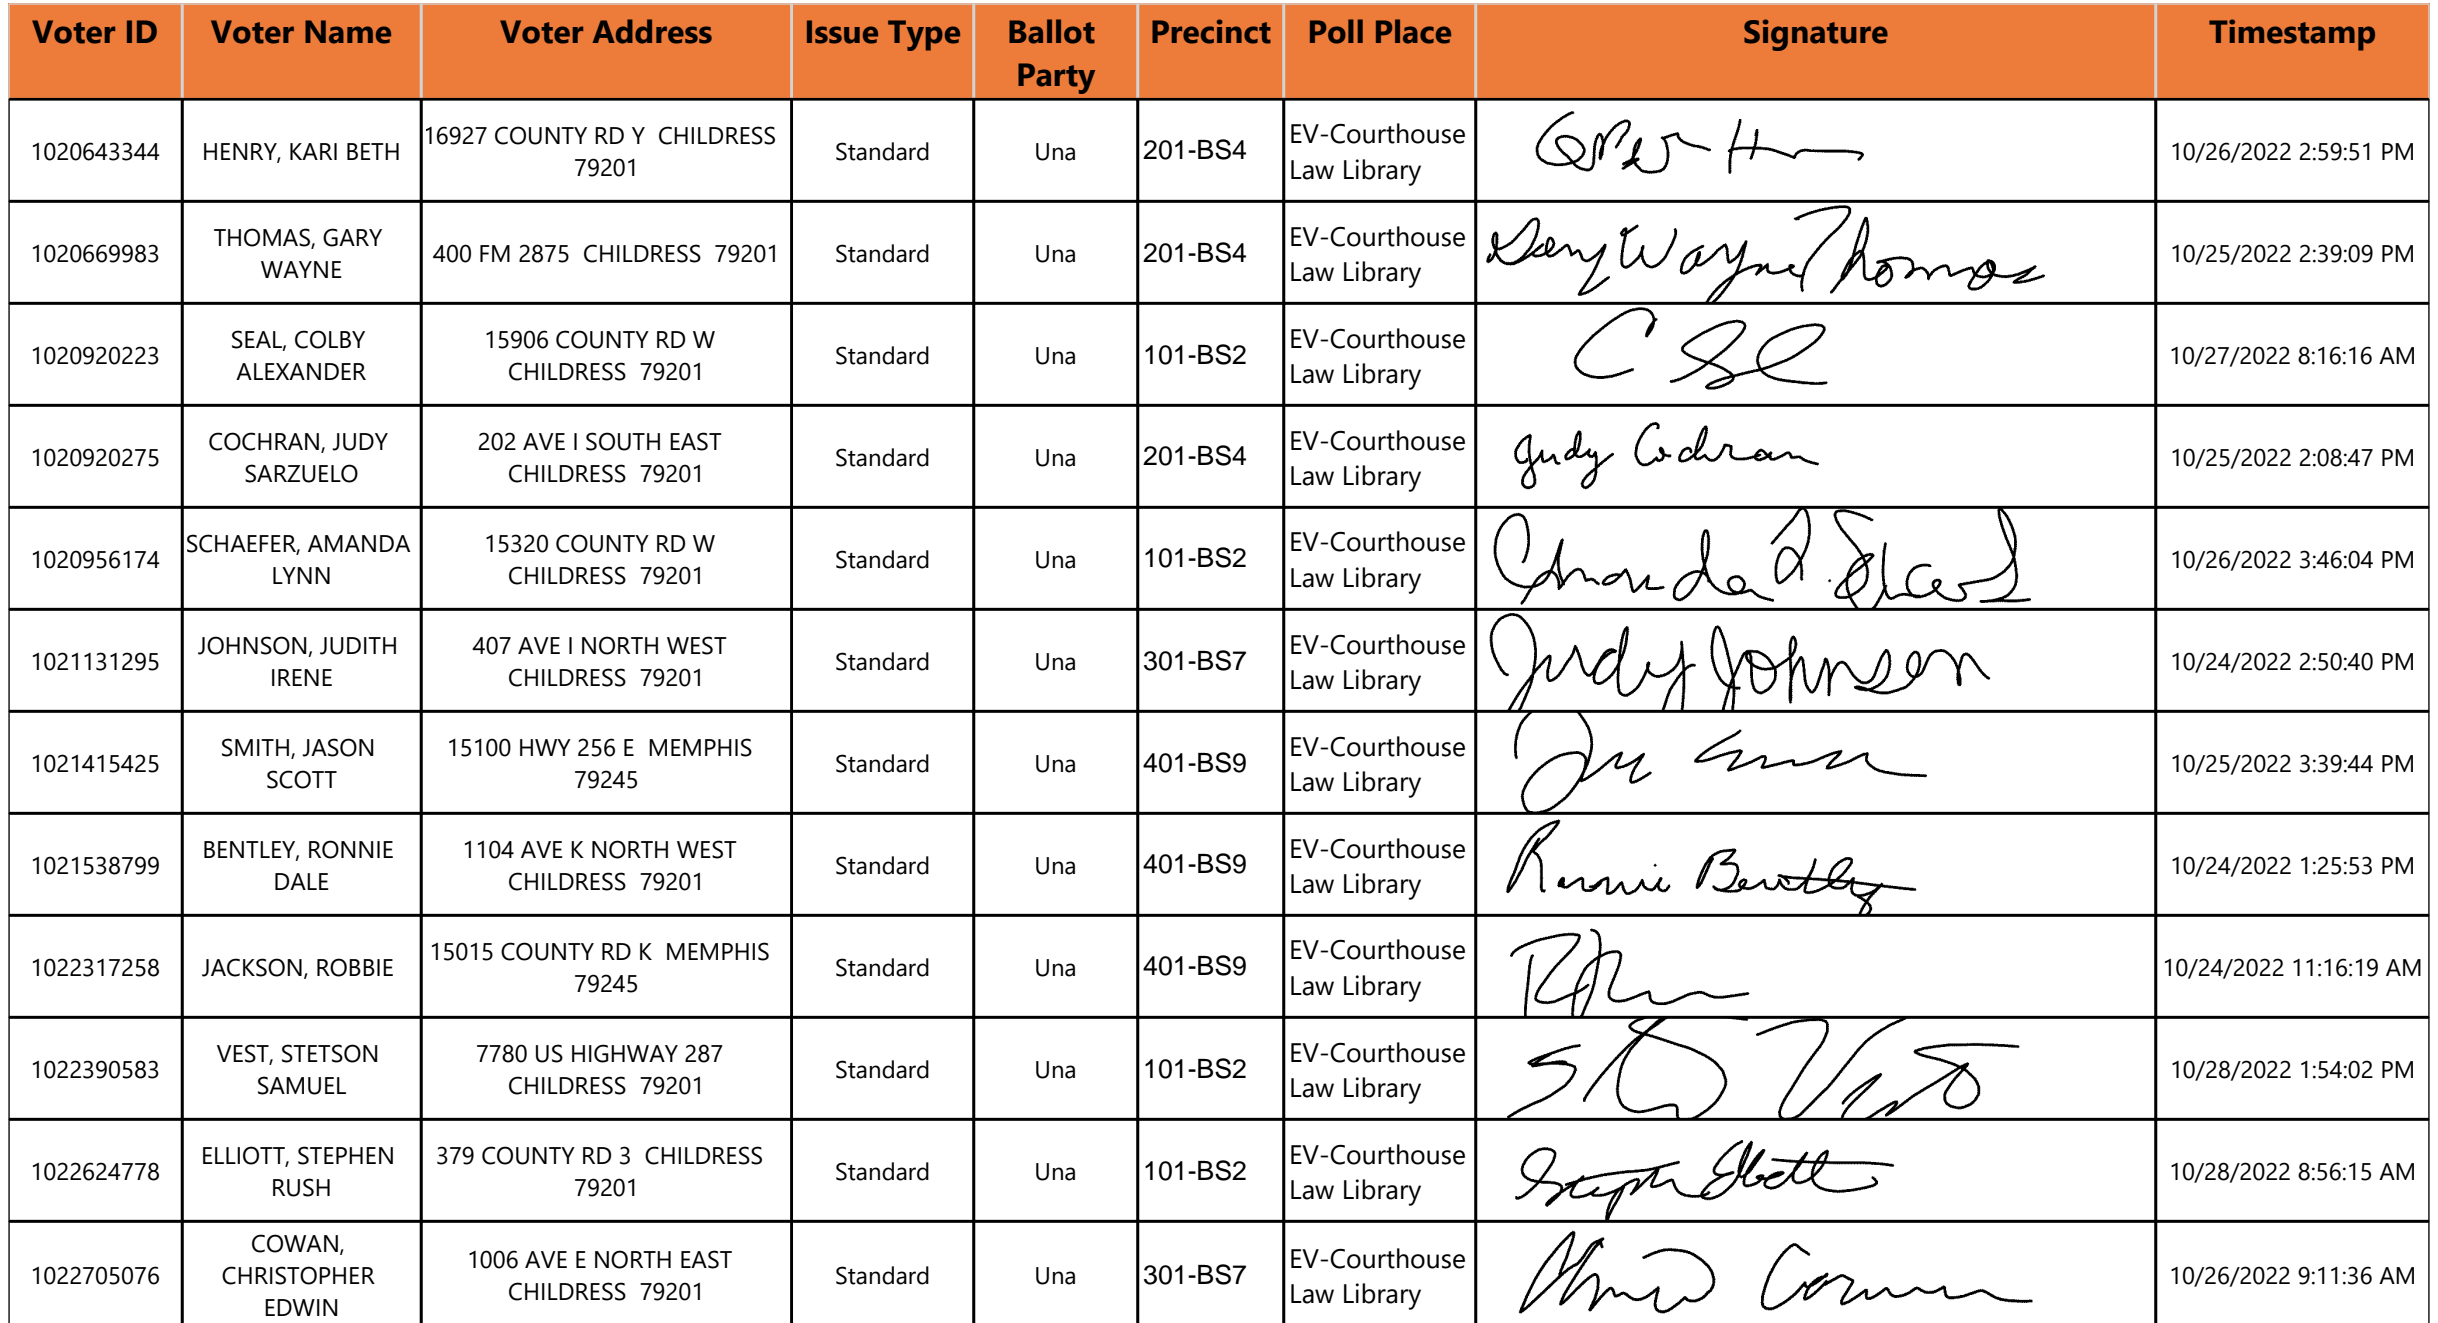 Voter ID Voter Name Voter Address Issue Type Ballot Party Precinct Poll Place Signature Timestamp
1020643344 HENRY, KARI BETH 16927 COUNTY RD Y CHILDRESS 79201 Standard Una 201-BS4 EV-Courthouse Law Library 10/26/2022 2:59:51 PM
1020669983 THOMAS, GARY WAYNE 400 FM 2875 CHILDRESS 79201 Standard Una 201-BS4 EV-Courthouse Law Library Gary Wayne Thomas 10/25/2022 2:39:09 PM
1020920223 SEAL, COLBY ALEXANDER 15906 COUNTY RD W CHILDRESS 79201 Standard Una 101-BS2 EV-Courthouse Law Library 10/27/2022 8:16:16 AM
1020920275 COCHRAN, JUDY SARZUELO 202 AVE I SOUTH EAST CHILDRESS 79201 Standard Una 201-BS4 EV-Courthouse Law Library Judy Cochran 10/25/2022 2:08:47 PM
1020956174 SCHAEFER, AMANDA LYNN 15320 COUNTY RD W CHILDRESS 79201 Standard Una 101-BS2 EV-Courthouse Law Library Amanda L. 10/26/2022 3:46:04 PM
1021131295 JOHNSON, JUDITH IRENE 407 AVE I NORTH WEST CHILDRESS 79201 Standard Una 301-BS7 EV-Courthouse Law Library Judy Johnson 10/24/2022 2:50:40 PM
1021415425 SMITH, JASON SCOTT 15100 HWY 256 E MEMPHIS 79245 Standard Una 401-BS9 EV-Courthouse Law Library 10/25/2022 3:39:44 PM
1021538799 BENTLEY, RONNIE DALE 1104 AVE K NORTH WEST CHILDRESS 79201 Standard Una 401-BS9 EV-Courthouse Law Library Ronnie Bentley 10/24/2022 1:25:53 PM
1022317258 JACKSON, ROBBIE 15015 COUNTY RD K MEMPHIS 79245 Standard Una 401-BS9 EV-Courthouse Law Library 10/24/2022 11:16:19 AM
1022390583 VEST, STETSON SAMUEL 7780 US HIGHWAY 287 CHILDRESS 79201 Standard Una 101-BS2 EV-Courthouse Law Library 10/28/2022 1:54:02 PM
1022624778 ELLIOTT, STEPHEN RUSH 379 COUNTY RD 3 CHILDRESS 79201 Standard Una 101-BS2 EV-Courthouse Law Library Stephen Elliott 10/28/2022 8:56:15 AM
1022705076 COWAN, CHRISTOPHER EDWIN 1006 AVE E NORTH EAST CHILDRESS 79201 Standard Una 301-BS7 EV-Courthouse Law Library 10/26/2022 9:11:36 AM